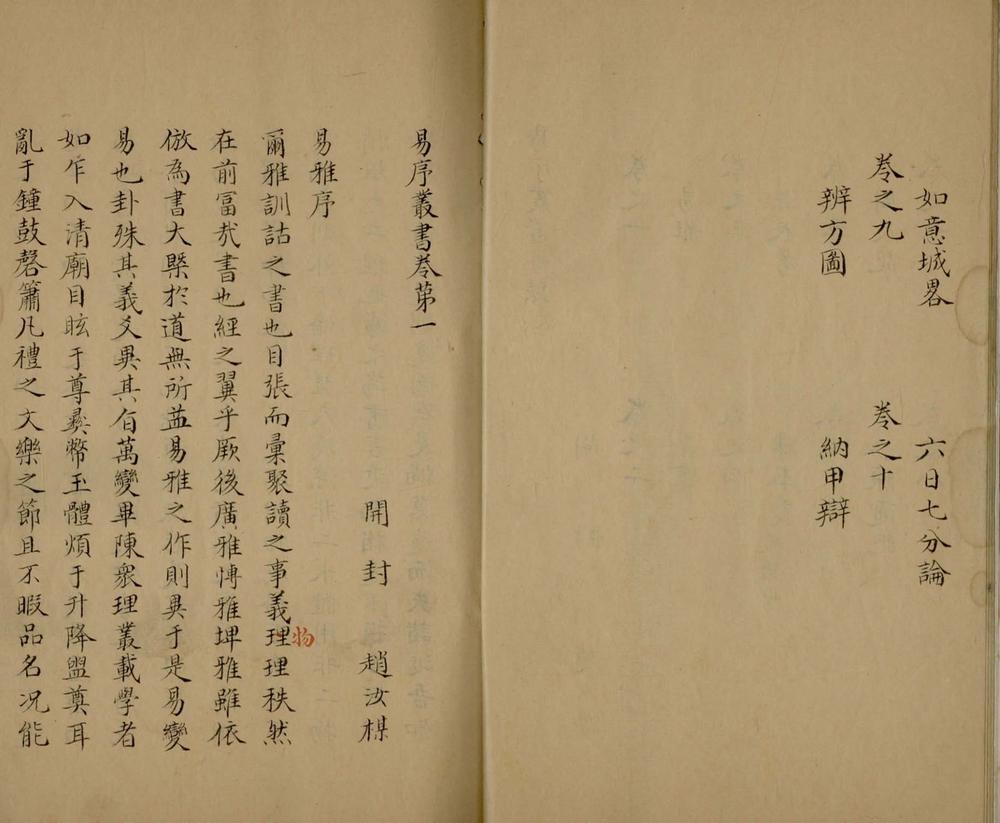 如意城畧　六日七分論
卷之九　卷之十
辨方圖　納甲辯
易序叢書卷第一
開封　趙汝楳
易雅序
爾雅訓詁之書也目張而彙聚讀之事義理理秩然
物
在前冨哉書也經之翼乎厥後廣雅博雅埤雅雖依
倣為書大槩於道無所益易雅之作則異于是易變
易也卦殊其義爻異其旨萬變畢陳衆理叢載學者
如乍入清廟目眩于尊彞幣玉體煩于升降盥奠耳
亂于鐘鼓磬簫凡禮之文樂之節且不暇品名況能